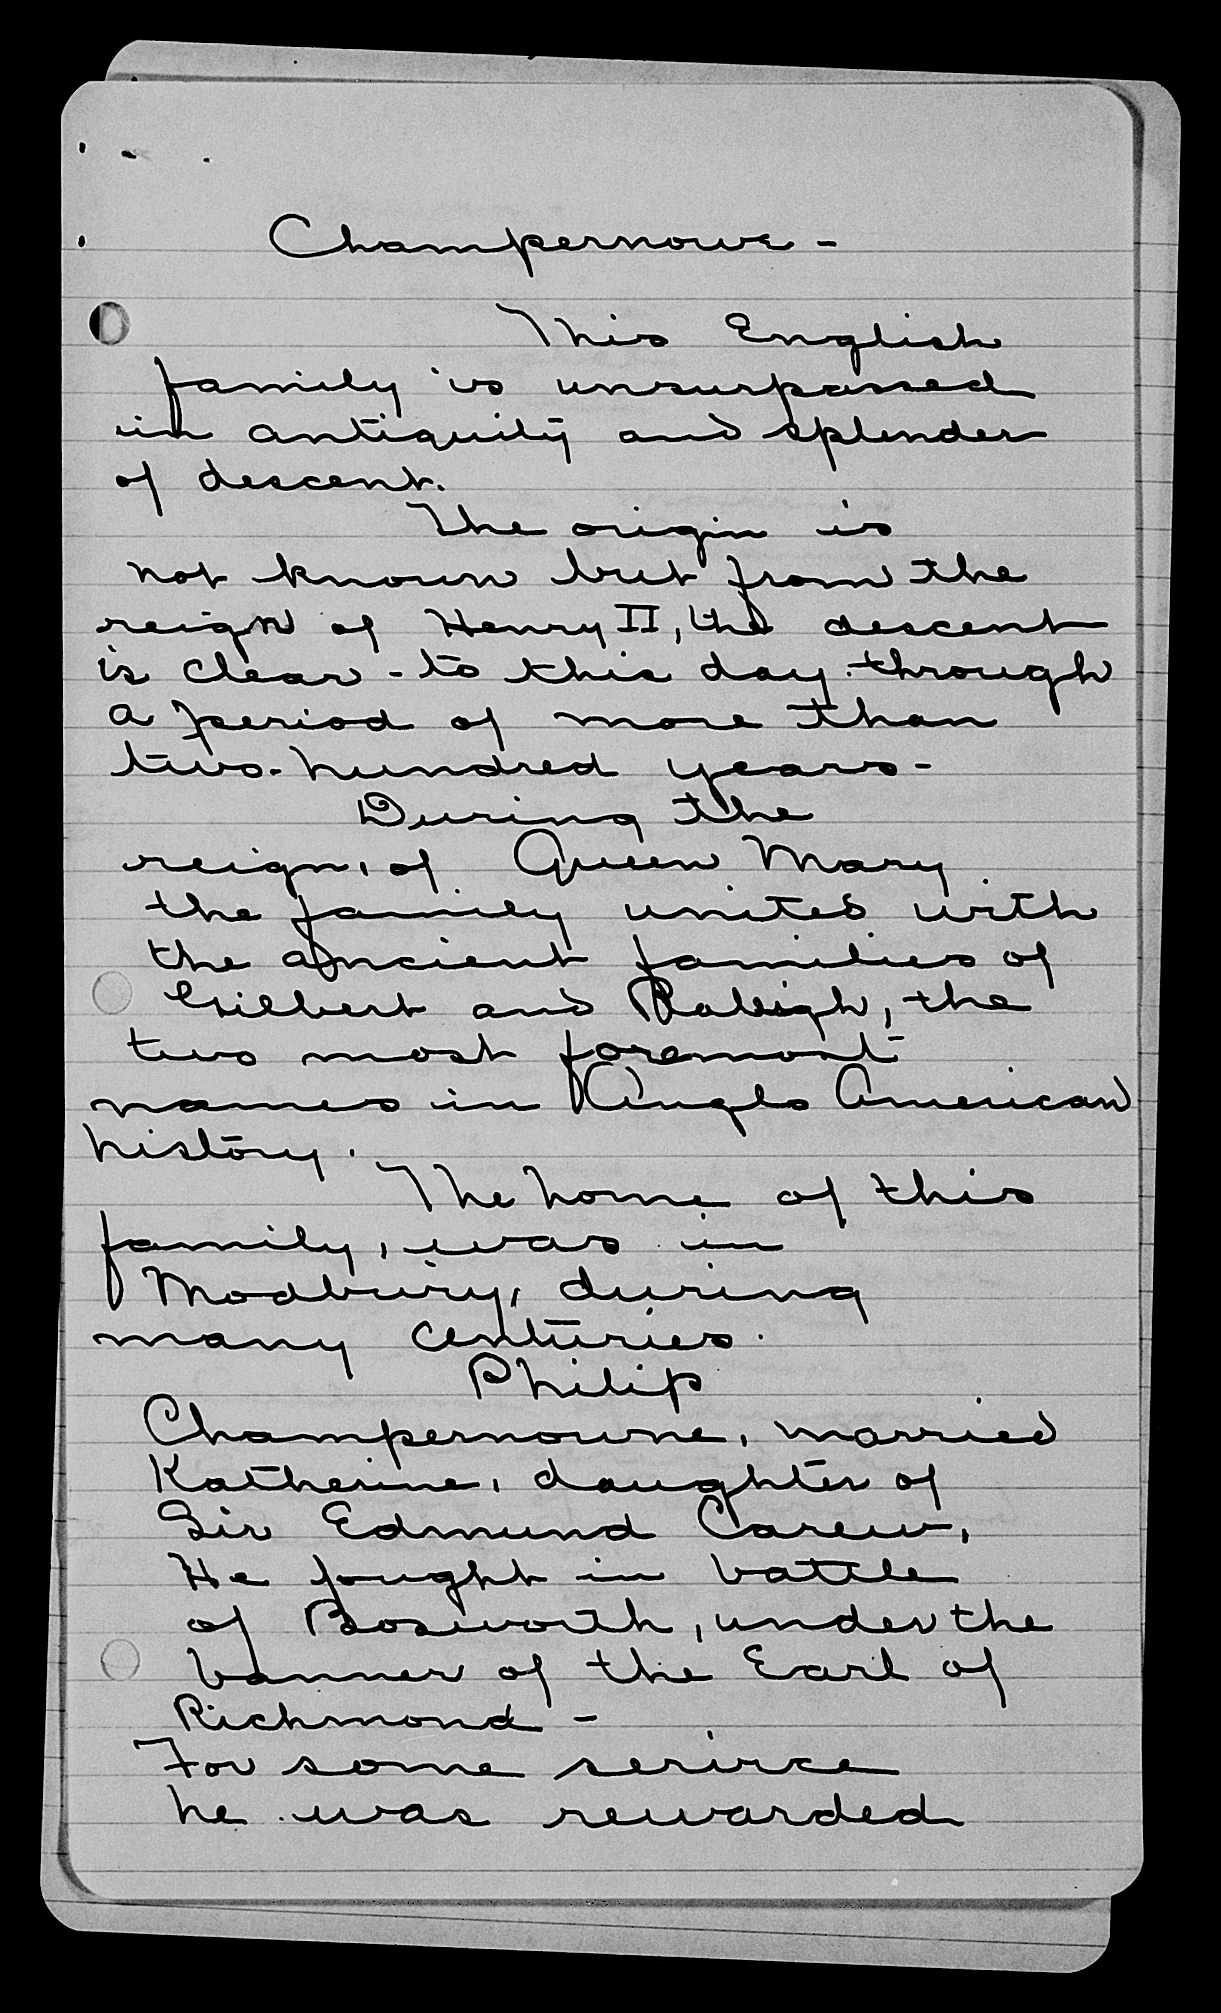 Champernowe -
This English
family is unsurpassed
in antiquity and splender
of descent.
The origin is
not known but from the
reign of Henry II, the descent
is clear - to this day. through
a period of more than
two-hundred years -
During the
reign, of Queen Mary
the family united with
the ancient families of
Gilbert and Raleigh, the
two most foremost
names in Anglo American
history.
The home of this
family, was in
Modbury, during
many centuries.
Philip
Champernowne, married
Katherine, daughter of
Sir Edmund Carew,
He fought in battle
of Bosworth, under the
banner of the Earl of
Richmond -
For some serivce
he was rewarded